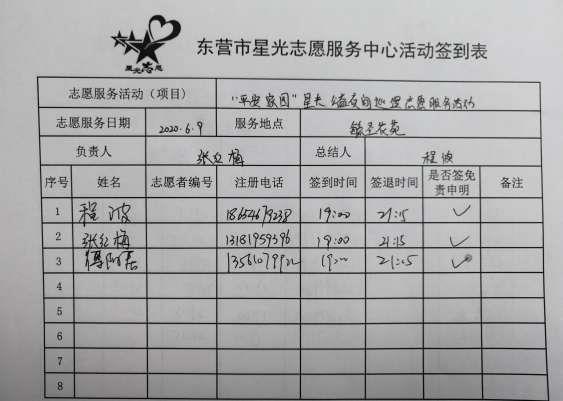 星光志愿
东营市星光志愿服务中心活动签到表
志愿服务活动（项目） "平安家园"星光公益夜间巡逻志愿服务活动
志愿服务日期 2020.6.9 服务地点
负责人 张红梅 总结人 程波
序号 姓名 志愿者编号 注册电话 签到时间 签退时间 是否签免责申明 备注
1 程波 18654679238 19:00 21:15 ✓
2 张红梅 13181959396 19:00 21:15 ✓
3 19:00 ✓
4
5
6
7
8